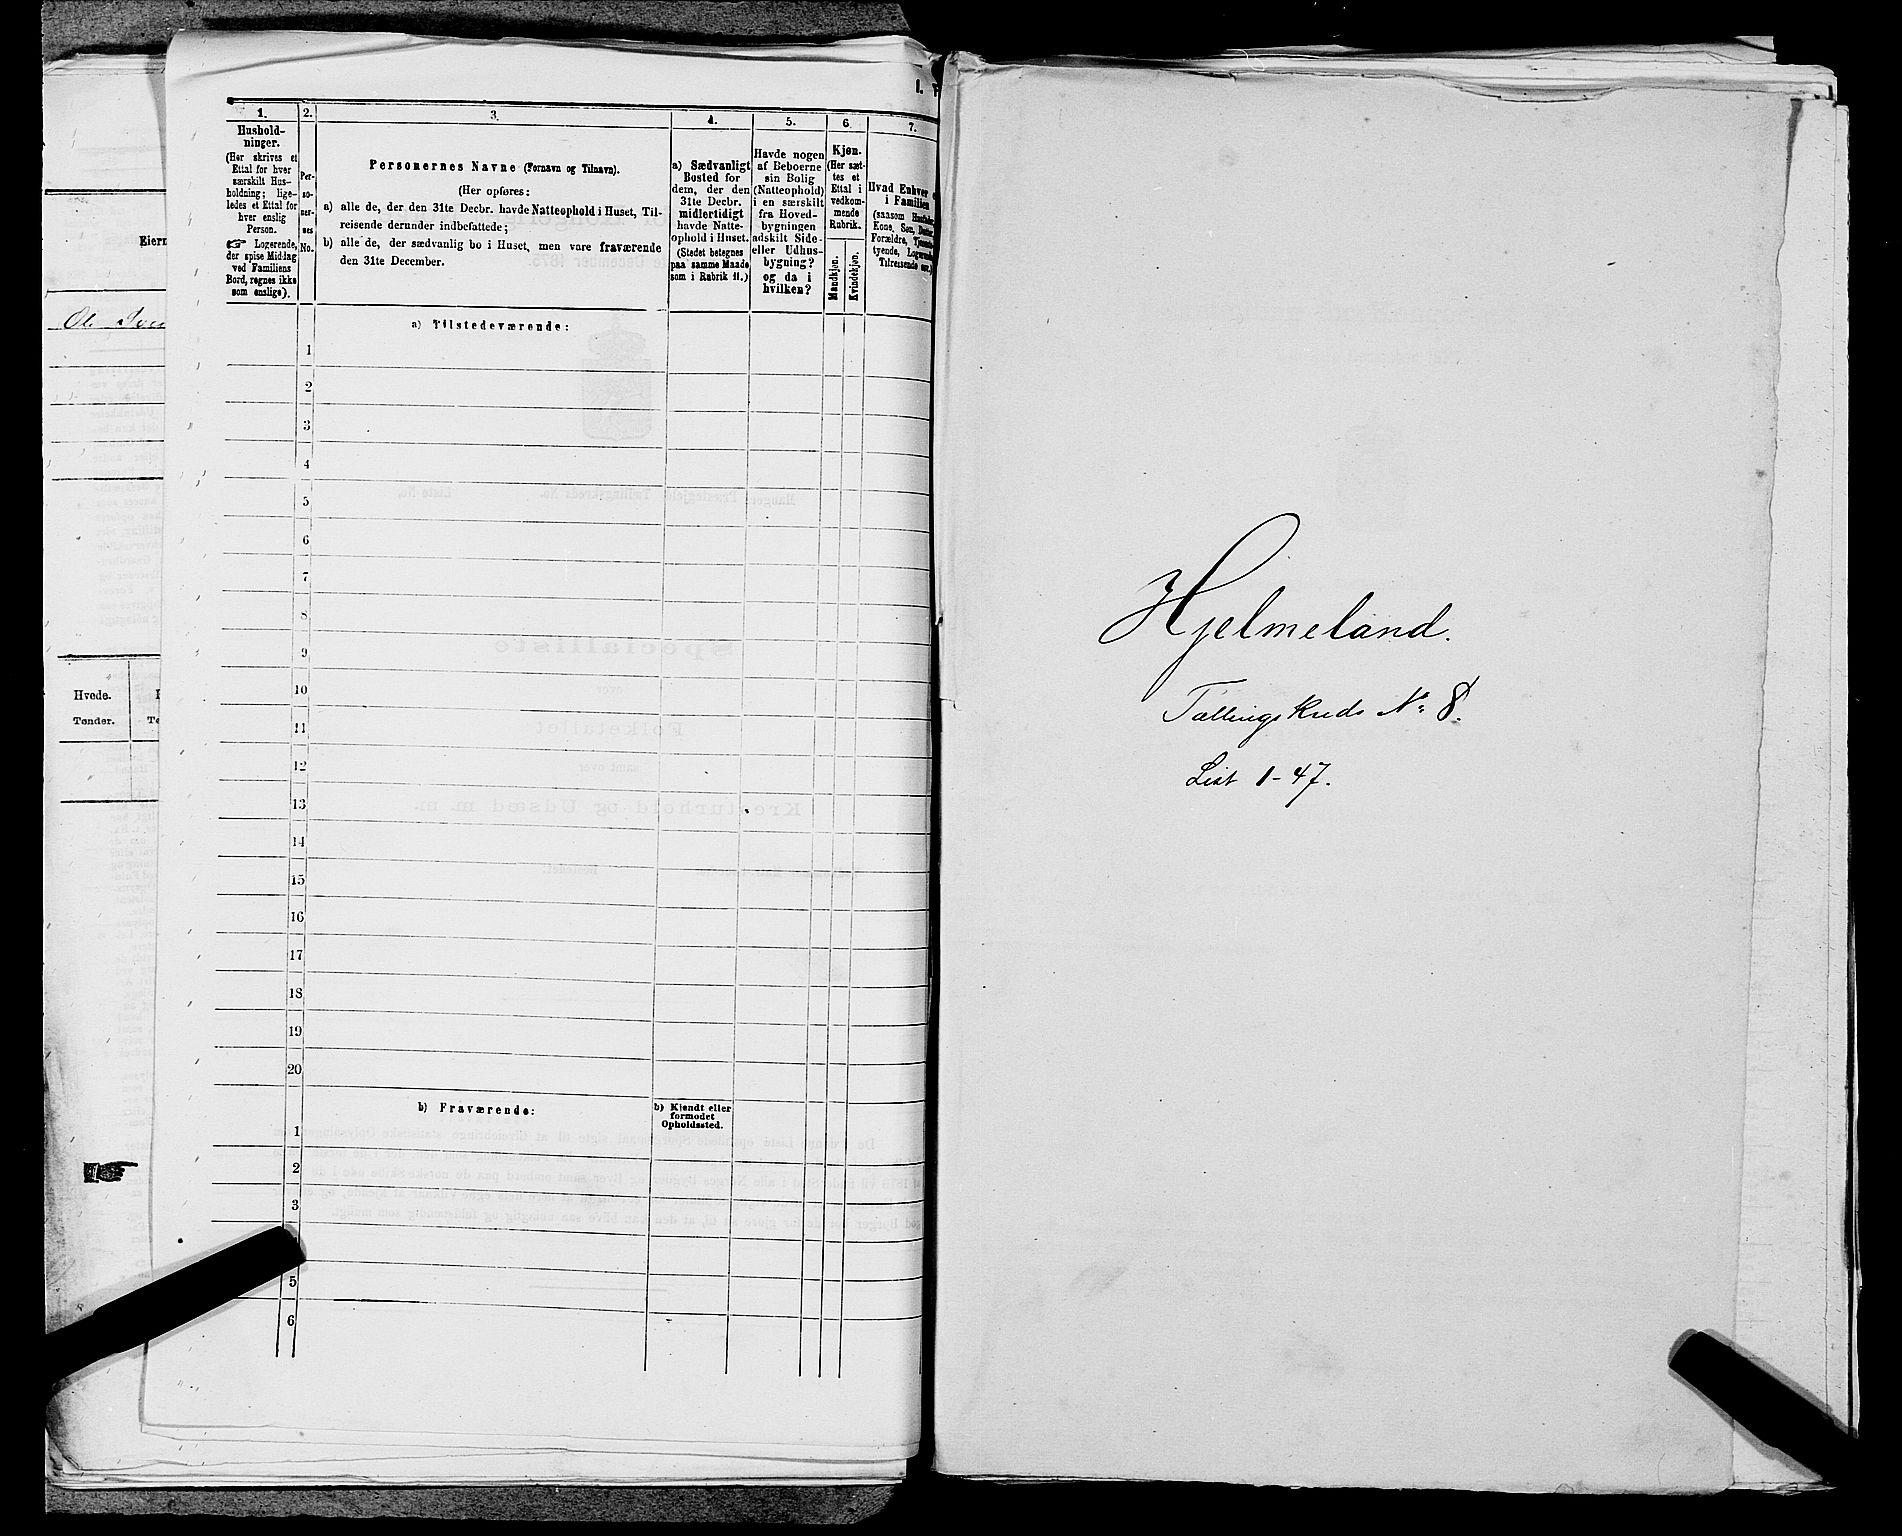 I.
1.
Hushold-
ninger.
(Her skrives et
Ettal for hver
særskilt Hus-
holdning; lige-
ledes et Ettal for
hver enslig
Person.
☞ Logerende,
der spise Middag
ved Familiens
Bord, regnes ikke
som enslige).
2.
Per-
so-
ner-
nes
No.
3.
Personernes Navne (Fornavn og Tilnavn).
(Her opføres:
a) alle de, der den 31te Decbr. havde Natteophold i Huset, Til-
reisende derunder indbefattede;
b) alle de, der sædvanlig bo i Huset, men vare fraværende
den 31te December.
4.
a) Sædvanligt
Bosted for
dem, der den
31te Decbr.
midlertidigt
havde Natte-
ophold i Huset.
(Stedet betegnes
paa samme Maade
som i Rubrik 11.)
5.
Havde nogen
af Beboerne
sin Bolig
(Natteophold)
i en særskilt
fra Hoved-
bygningen
adskilt Side-
eller Udhus-
bygning?
og da i
hvilken?
6.
Kjøn.
(Her sæt-
tes et
Ettal i
vedkom-
mende
Rubrik.
Mandkjøn.
Kvindekjøn.
7.
Hvad Enhver
i Familien
(saasom
Kone, Søn,
Forældre,
tyende,
Tilreisende
a) Tilstedeværende:
1
2
3
4
5
6
7
8
9
10
11
12
13
14
15
16
17
18
19
20
b) Fraværende:
b) Kjendt eller
formodet
Opholdssted.
1
2
3
5
6
Eiern
Hvede.
Tønder.
Hjelmeland.
Tællingskreds No 8.
List 1-47.